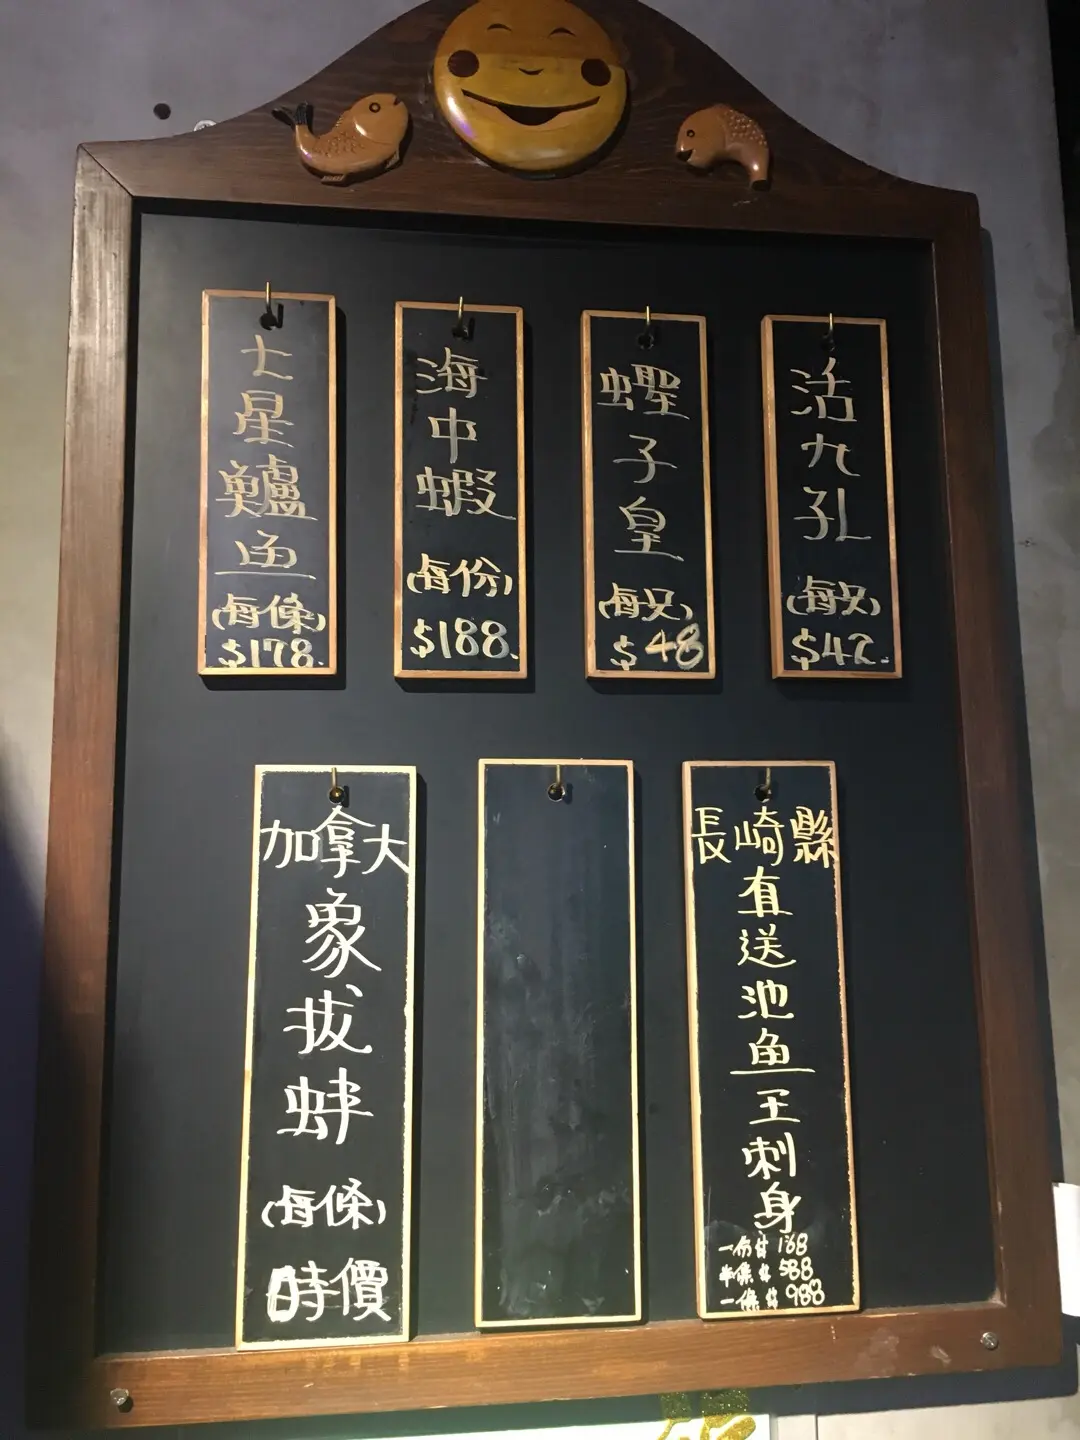 七星鱸魚
(每條)
$178.
海中蝦
(每份)
$188.
蟶子皇
(每只)
$48
活九孔
(每只)
$42.
加拿大
象拔蚌
(每條)
時價
長崎縣
直送池魚王刺身
一份$168
半條$588
一條$988